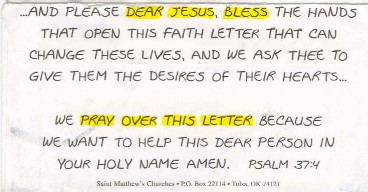 ...AND PLEASE DEAR JESUS, BLESS THE HANDS
THAT OPEN THIS FAITH LETTER THAT CAN
CHANGE THESE LIVES, AND WE ASK THEE TO
GIVE THEM THE DESIRES OF THEIR HEARTS...
WE PRAY OVER THIS LETTER BECAUSE
WE WANT TO HELP THIS DEAR PERSON IN
YOUR HOLY NAME AMEN. PSALM 37:4
Saint Matthew's Churches • P.O. Box 22114 • Tulsa, OK 74121